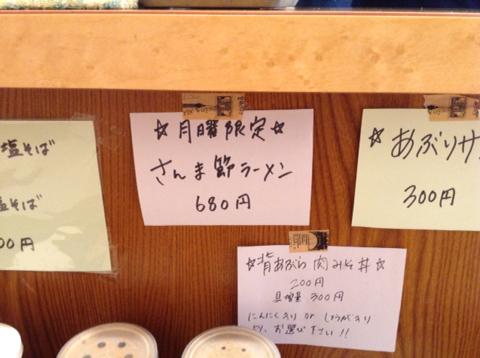 塩そば
塩そば
00円
☆月曜限定☆
さんま節ラーメン
680円
☆あぶりサ
300円
☆背あぶら肉みそ丼☆
200円
具増量 300円
にんにく入り or しょうが入り
より、お選び下さい!!